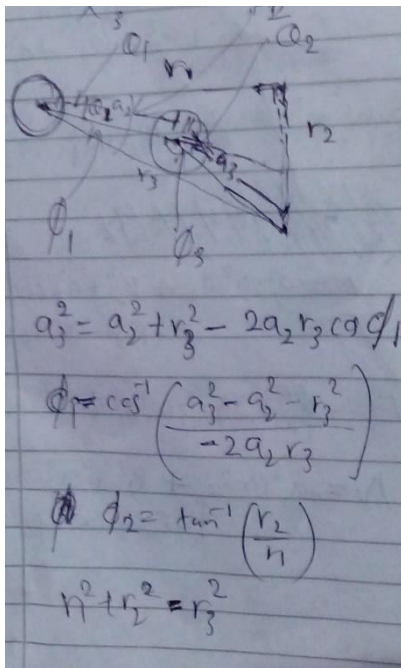 θ₁
θ₂
r₁
r₂
θ₂ a₂
a₃
r₃
ϕ₁
ϕ₃
a₃² = a₂² + r₃² - 2a₂ r₃ cos ϕ₁
ϕ₁ = cos⁻¹ ( (a₃² - a₂² - r₃²) / (-2a₂ r₃) )
ϕ₂ = tan⁻¹ ( r₂ / r₁ )
r₁² + r₂² = r₃²